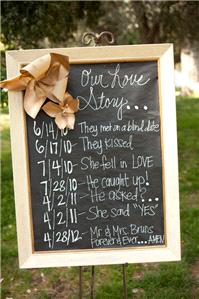 Our Love
Story...
6/14/10 They met on a blind date
6/17/10 They kissed
7/4/10 She fell in LOVE
7/28/10 He caught up!
4/2/11 He asked?...
4/2/11 She said "YES"
4/28/12 Mr. & Mrs. Bruns
Forever & Ever... AMEN